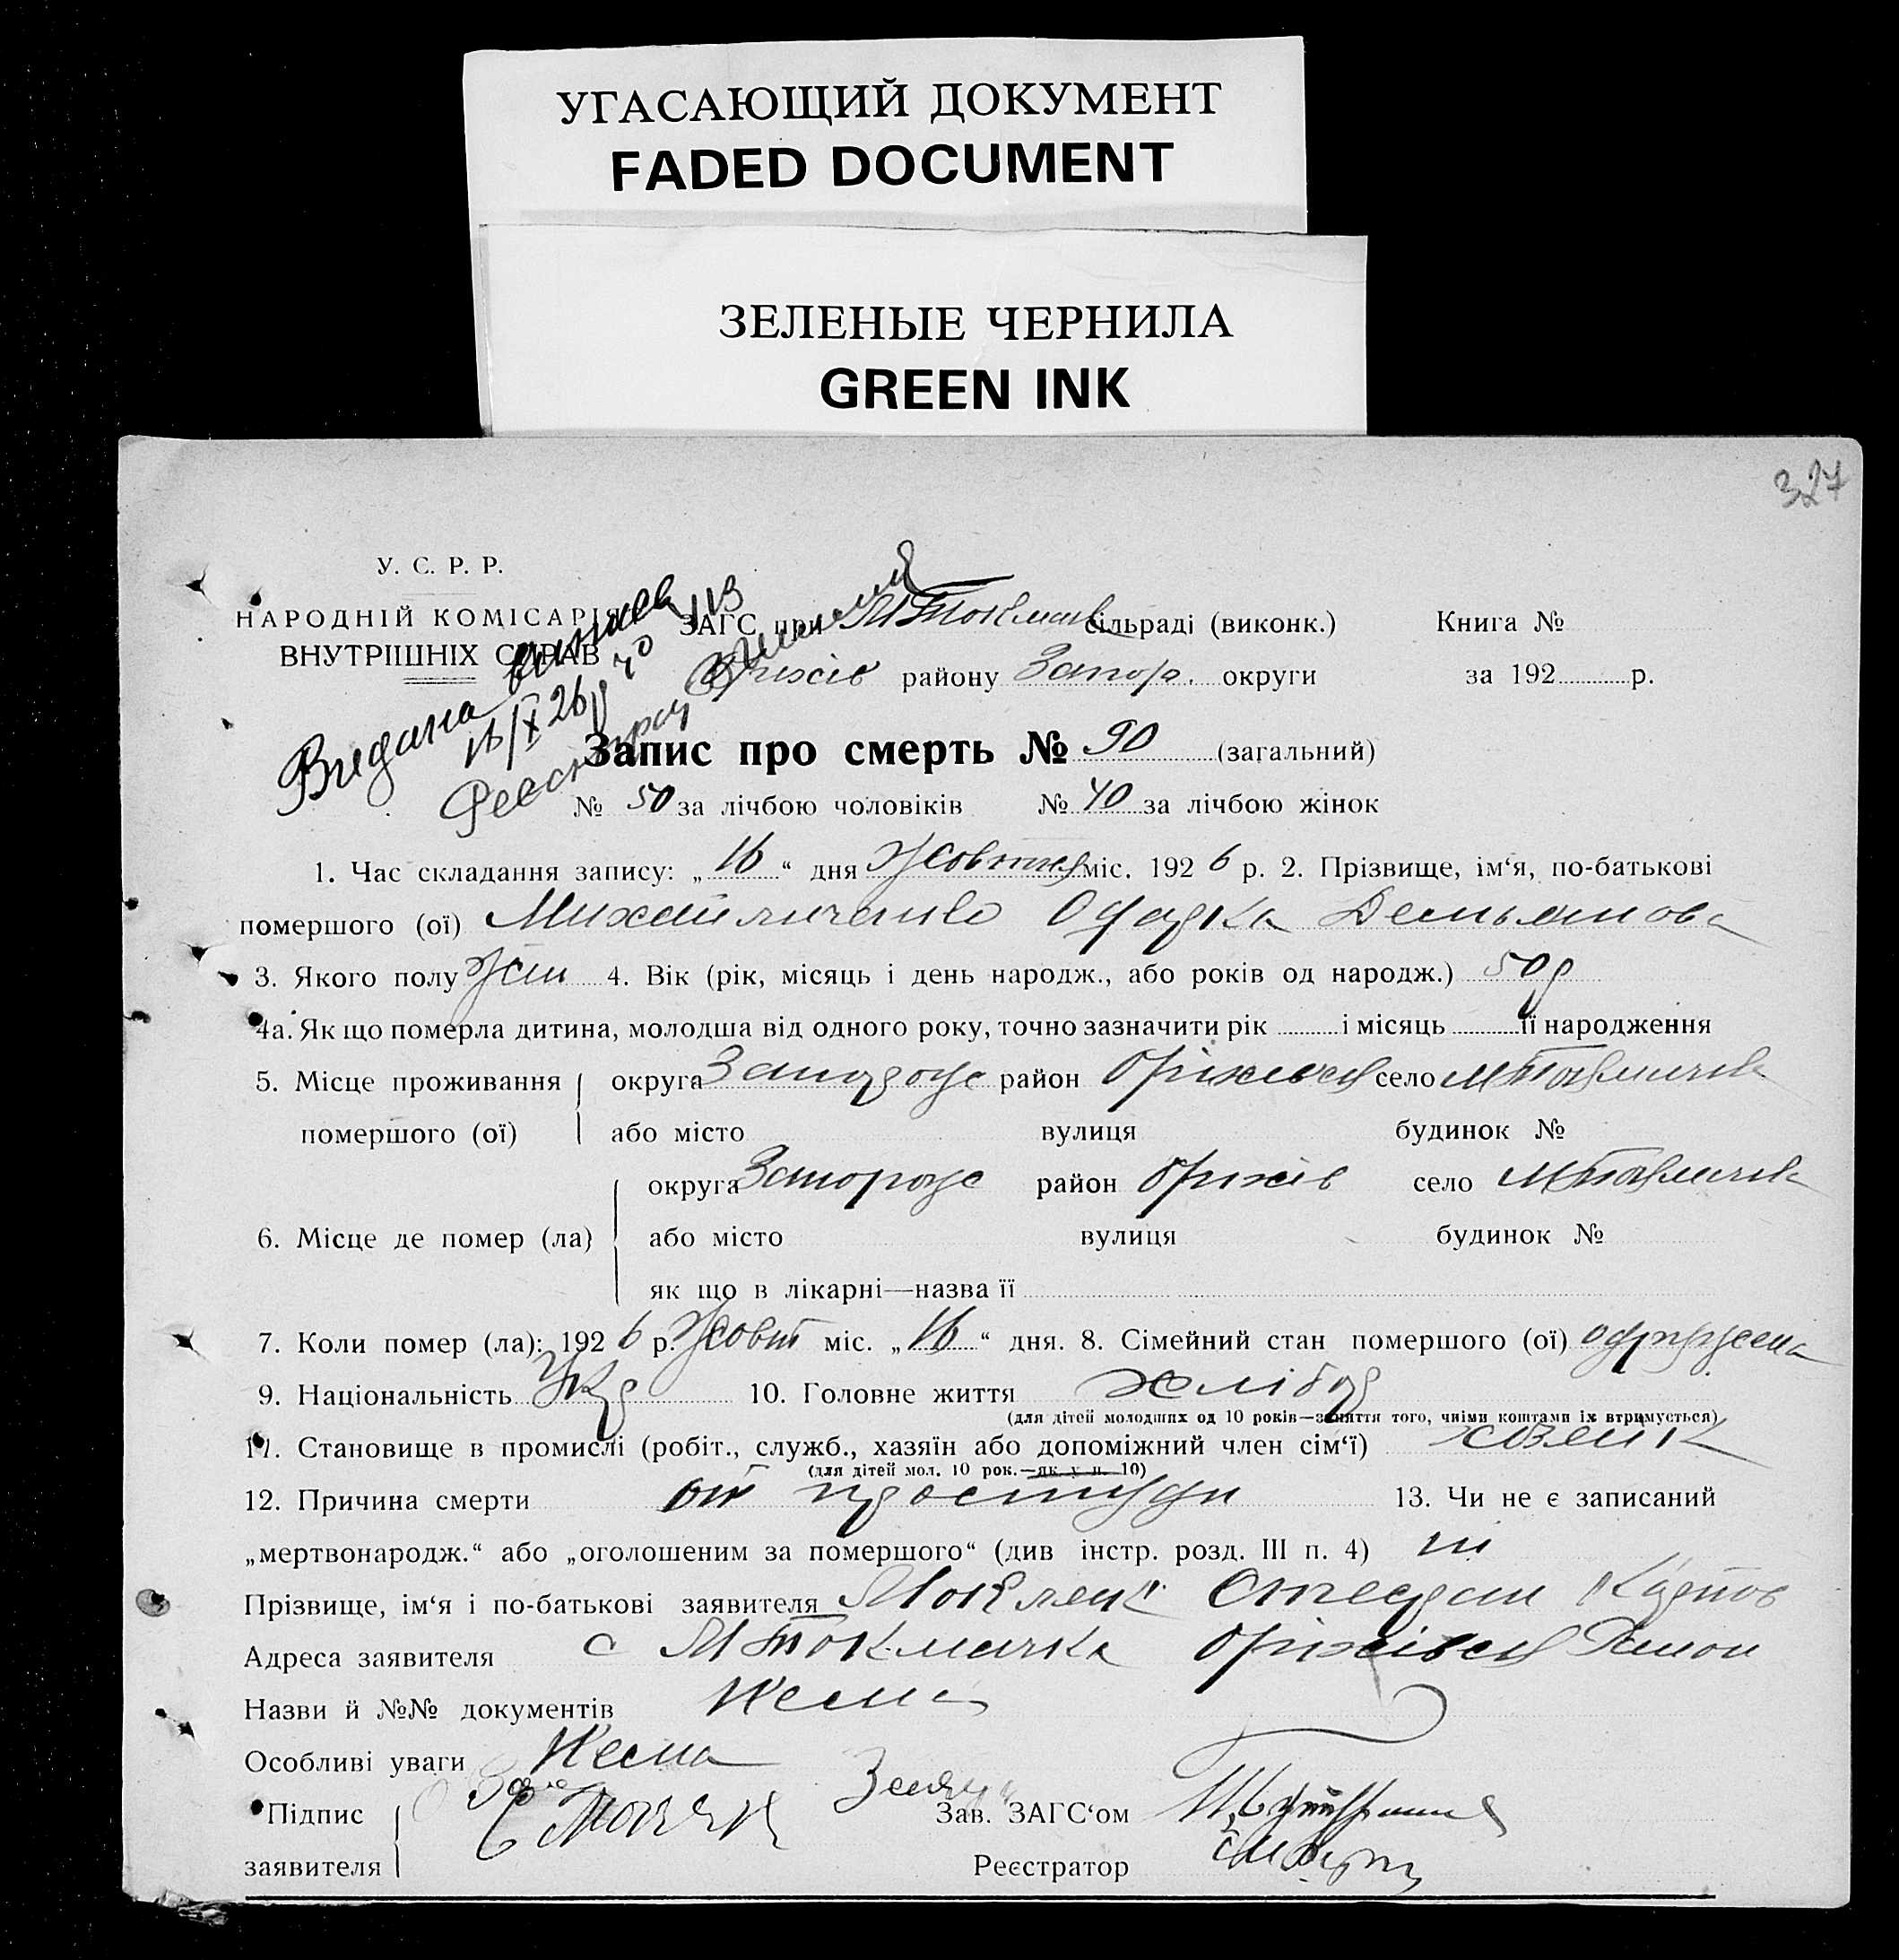 УГАСАЮЩИЙ ДОКУМЕНТ
FADED DOCUMENT
ЗЕЛЕНЫЕ ЧЕРНИЛА
GREEN INK
327
У. С. Р. Р.
НАРОДНІЙ КОМІСАРІЯТ
ВНУТРІШНІХ СПРАВ
Видана виписка
16/X 26 р
ЗАГС при М Токмач сільраді (виконк.) Книга №
Оріхів району Запор. округи за 192 р.
Запис про смерть № 90 (загальний)
№ 50 за лічбою чоловіків № 40 за лічбою жінок
1. Час складання запису: „16“ дня Жовтня міс. 1926 р. 2. Прізвище, ім‘я, по-батькові
помершого (ої) Михайличенко Одарка Демьянова
3. Якого полу жін 4. Вік (рік, місяць і день народж., або років од народж.) 50 р
4а. Як що померла дитина, молодша від одного року, точно зазначити рік і місяць її народження
5. Місце проживання округа Запорож район Оріхівськ село М Токмачка
помершого (ої) або місто вулиця будинок №
округа Запорож район Оріхів село М Токмачка
6. Місце де помер (ла) або місто вулиця будинок №
як що в лікарні—назва її
7. Коли помер (ла): 1926 р. Жовт міс. „16“ дня. 8. Сімейний стан помершого (ої) одружена
9. Національність Укр 10. Головне життя хлібор
(для дітей молодших од 10 років—заняття того, чиїми коштами їх втримується)
11. Становище в промислі (робіт., служб., хазяїн або допоміжний член сім‘ї)
(для дітей мол. 10 рок.—як у п. 10)
12. Причина смерти от простуди 13. Чи не є записаний
„мертвонародж.“ або „оголошеним за помершого“ (див інстр. розд. III п. 4) ні
Прізвище, ім‘я і по-батькові заявителя Степан Карпов
Адреса заявителя с М Токмачка Оріхівськ Район
Назви й №№ документів Нема
Особливі уваги Нема
Підпис Зав. ЗАГС‘ом
заявителя Реєстратор